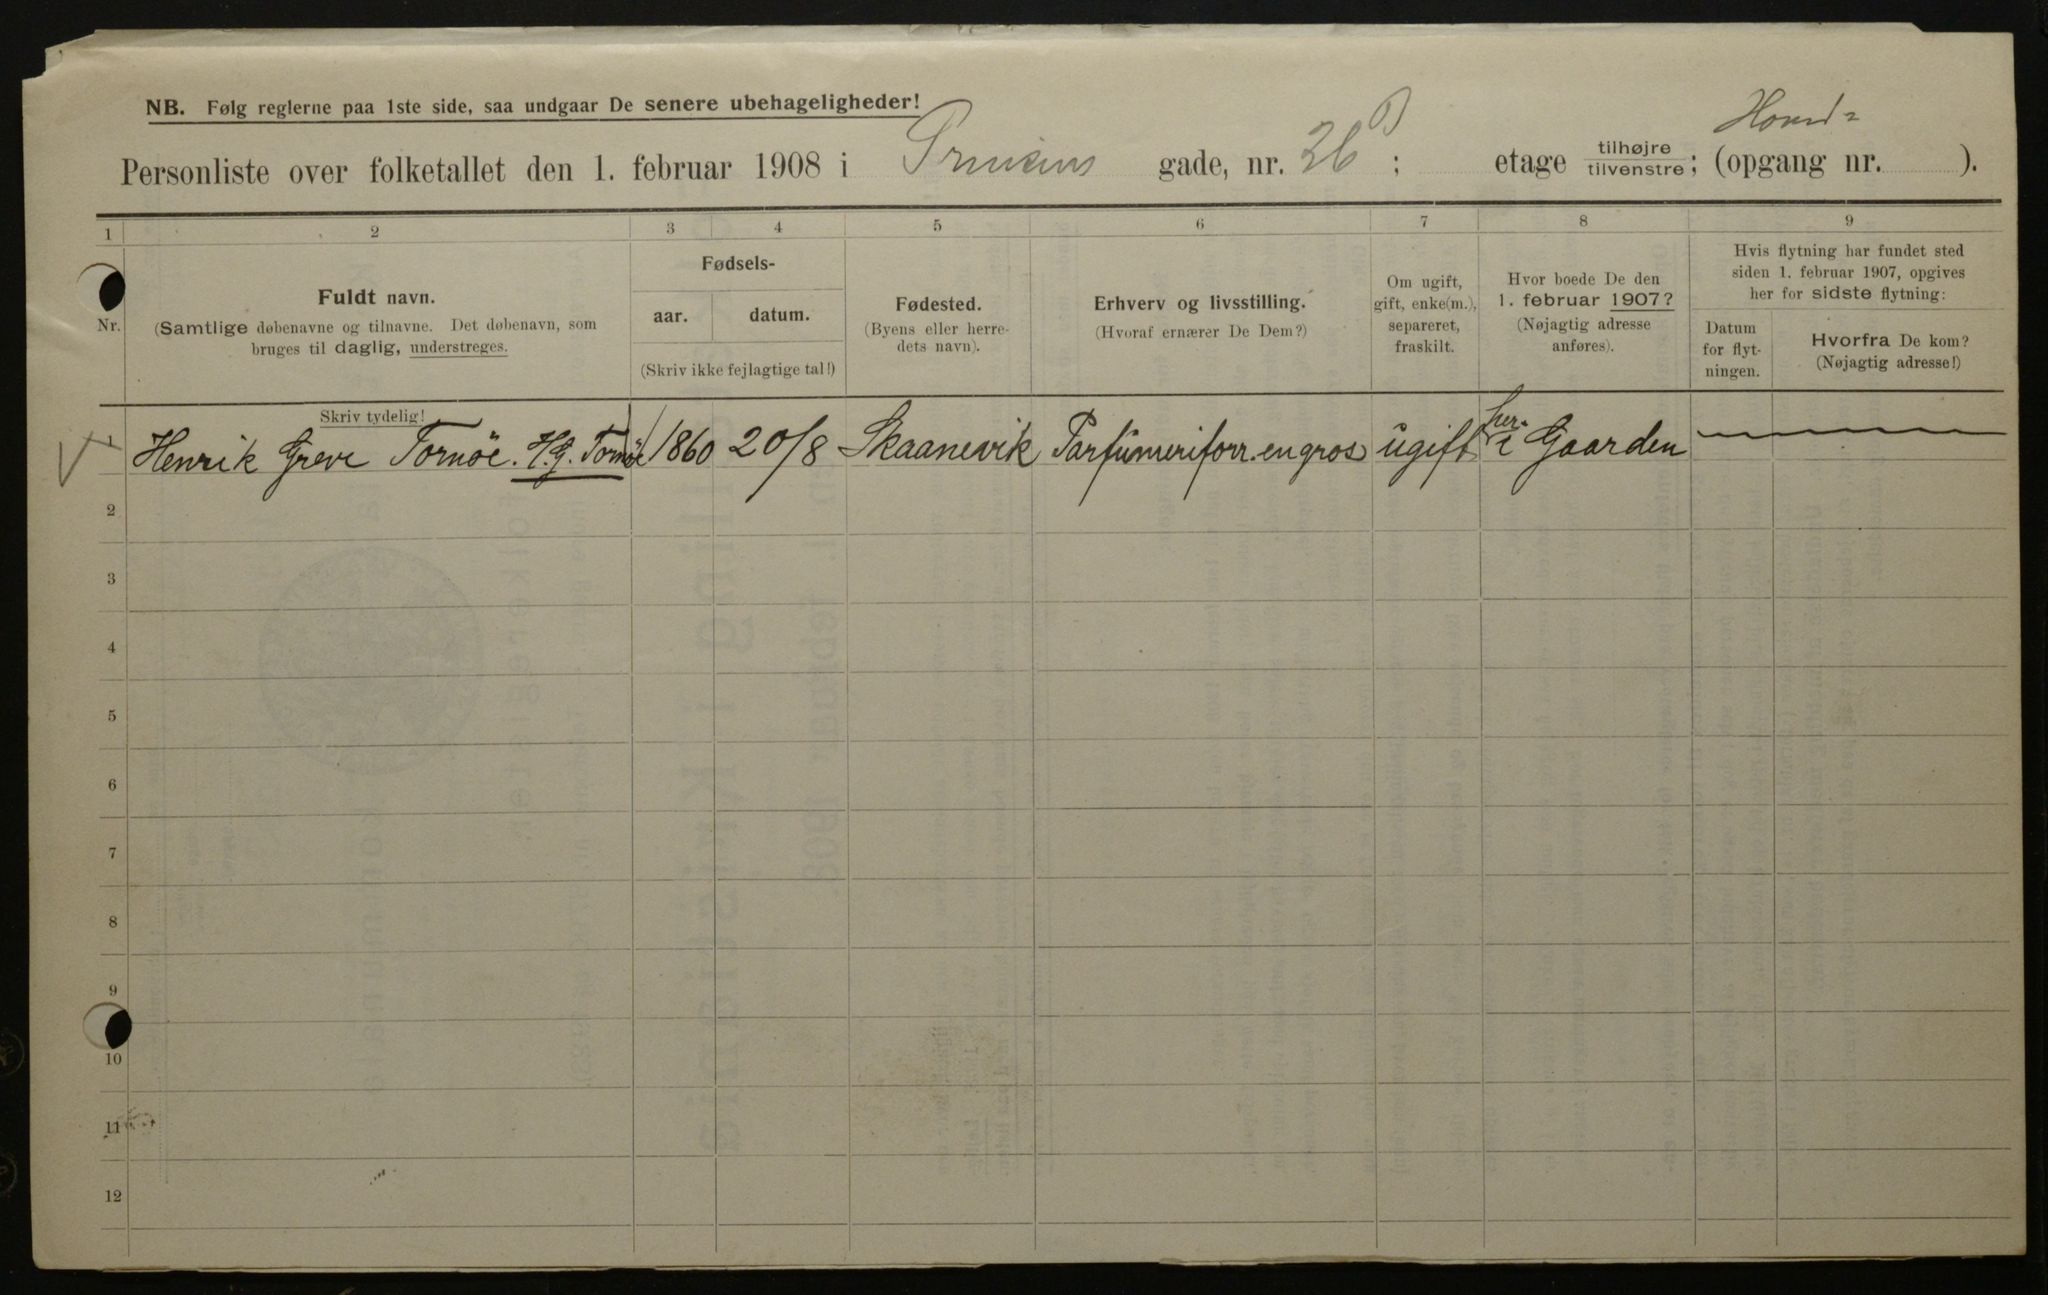 NB. Følg reglerne paa 1ste side, saa undgaar De senere ubehageligheder!
Personliste over folketallet den 1. februar 1908 i Prinsens gade, nr. 26 B; etage tilhøjre/tilvenstre; (opgang nr. Hoved=).
1 2 3 4 5 6 7 8 9
Nr.
Fuldt navn.
(Samtlige døbenavne og tilnavne. Det døbenavn, som
bruges til daglig, understreges.
Skriv tydelig!
Fødsels-
aar. datum.
(Skriv ikke fejlagtige tal!)
Fødested.
(Byens eller herre-
dets navn).
Erhverv og livsstilling.
(Hvoraf ernærer De Dem?)
Om ugift,
gift, enke(m.),
separeret,
fraskilt.
Hvor boede De den
1. februar 1907?
(Nøjagtig adresse
anføres).
Hvis flytning har fundet sted
siden 1. februar 1907, opgives
her for sidste flytning:
Datum
for flyt-
ningen.
Hvorfra De kom?
(Nøjagtig adresse!)
1 Henrik Greve Tornöe. H.G. Tornöe 1860 20/8 Skaanevik Parfümeriforr. engros ugift her i Gaarden
2
3
4
5
6
7
8
9
10
11
12